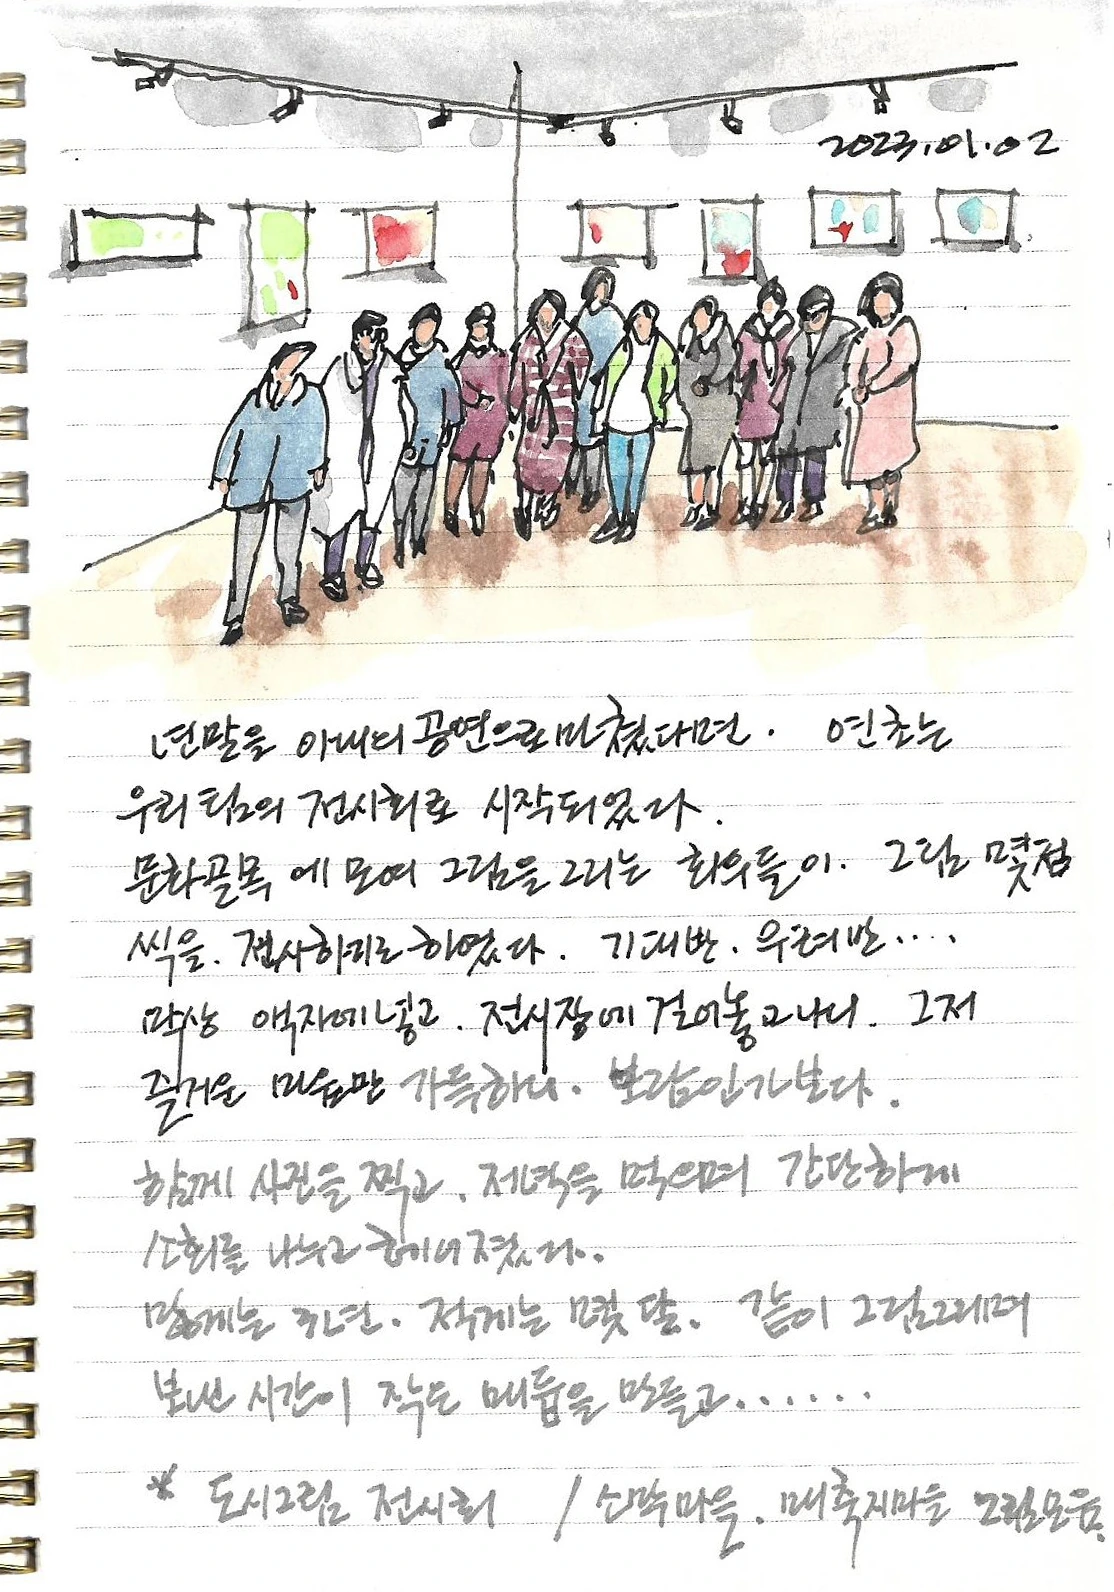 2023.01.02
년말을 아내의 공연으로 마쳤다면. 연초는
우리 팀의 전시회로 시작되었다.
문화골목에 모여 그림을 그리는 화우들이. 그림 몇점
씩을. 전시하기로 하였다. 기대반. 우려반....
막상 액자에 넣고. 전시장에 걸어놓고나니. 그저
즐거운 마음만 가득하니. 보람인가보다.
함께 사진을 찍고. 저녁을 먹으며 간단하게
소회를 나누고 헤어졌다..
많게는 몇 달. 같이 그림그리며
보낸 시간이 작은 매듭을 만들고......
* 도시그림 전시회 / 신막마을. 매축지마을 그림모음.